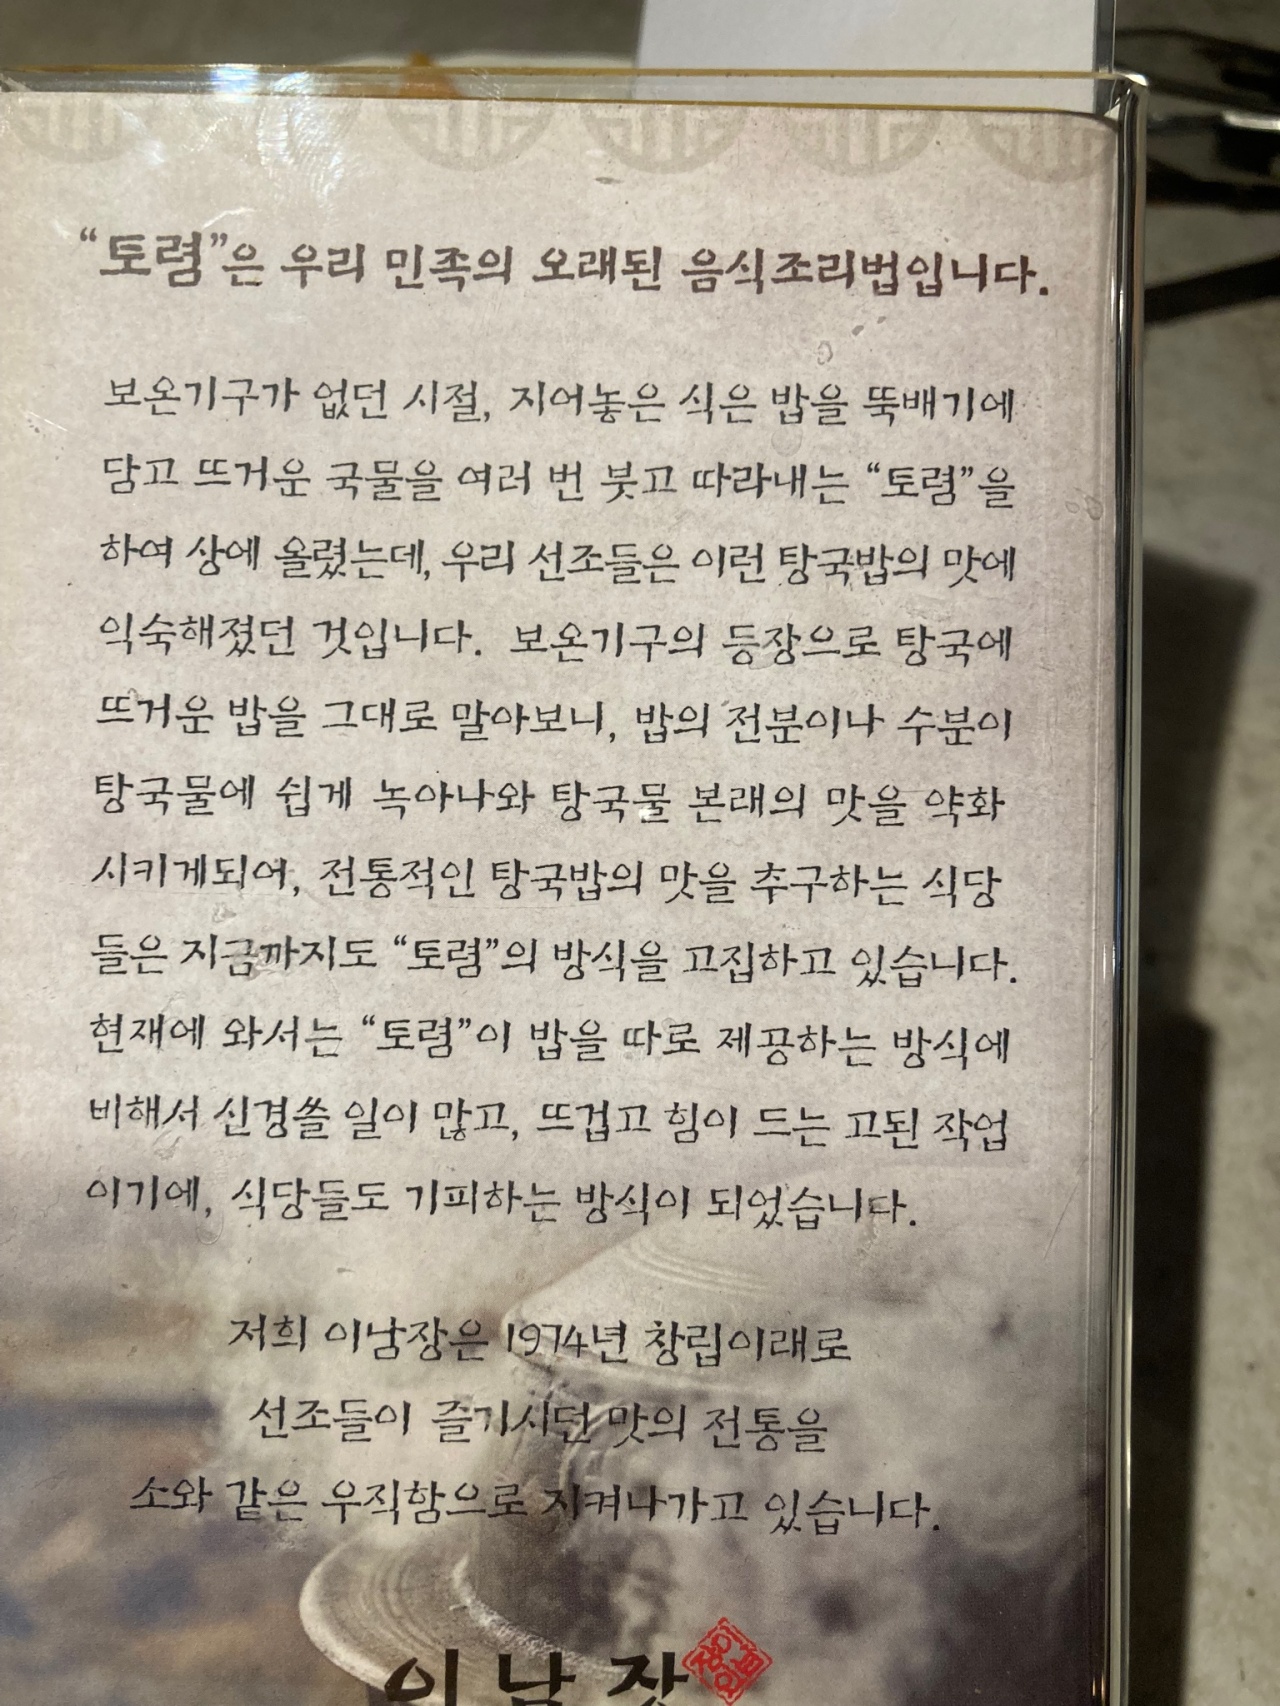 “토렴”은 우리 민족의 오래된 음식조리법입니다.
보온기구가 없던 시절, 지어놓은 식은 밥을 뚝배기에
담고 뜨거운 국물을 여러 번 붓고 따라내는 “토렴”을
하여 상에 올렸는데, 우리 선조들은 이런 탕국밥의 맛에
익숙해졌던 것입니다. 보온기구의 등장으로 탕국에
뜨거운 밥을 그대로 말아보니, 밥의 전분이나 수분이
탕국물에 쉽게 녹아나와 탕국물 본래의 맛을 약화
시키게되어, 전통적인 탕국밥의 맛을 추구하는 식당
들은 지금까지도 “토렴”의 방식을 고집하고 있습니다.
현재에 와서는 “토렴”이 밥을 따로 제공하는 방식에
비해서 신경쓸 일이 많고, 뜨겁고 힘이 드는 고된 작업
이기에, 식당들도 기피하는 방식이 되었습니다.
저희 이남장은 1974년 창립이래로
선조들이 즐기시던 맛의 전통을
소와 같은 우직함으로 지켜나가고 있습니다.
이남장